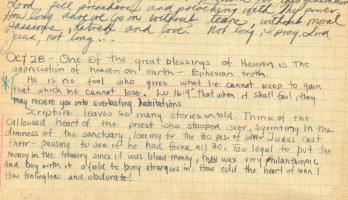 Lord, fill preachers and preaching with thy power.
How long dare we go on without tears, without moral
passions, hatred and love. Not long, I pray, Lord
Jesus, not long...
Oct 28 - One of the great blessings of Heaven is the
appreciation of heaven on earth - Ephesian truth.
* He is no fool who gives what he cannot keep to gain
that which he cannot lose. Lu 16:9 "that when it shall fail, they
may receive you into everlasting habitations
Scripture leaves so many stories untold. Think of the
calloused heart of the priest who stooped over, squinting in the
dimness of the sanctuary, looking for the 30 pcs of silver Judas cast
there - pausing to see if he had found all 30. Too legal to put the
money in the treasury since it was blood-money, they wax very philanthropic
and buy with it a field to bury strangers in. How cold the heart of man!
How feelingless and obdurate!